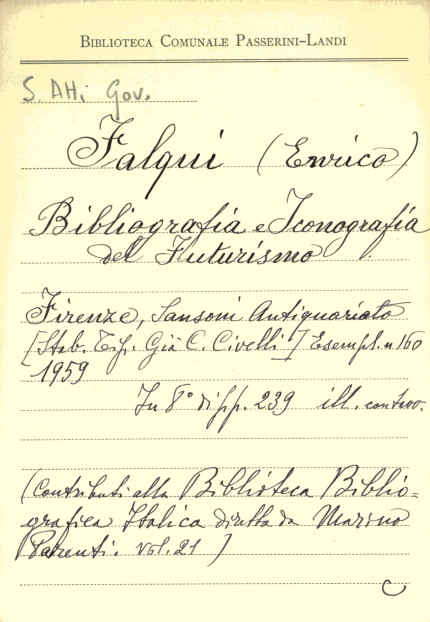 BIBLIOTECA COMUNALE PASSERINI-LANDI
S. AH. Gov.
Falqui (Enrico)
Bibliografia e Iconografia
del Futurismo
Firenze, Sansoni Antiquariato
[Stab. Tip. Già C. Civelli] Esempl. n 160
1959
In 8° di pp. 239 ill. con tavv.
(Contributi alla Biblioteca Biblio=
grafica Italica diretta da Marino
Parenti. Vol. 21 )
C